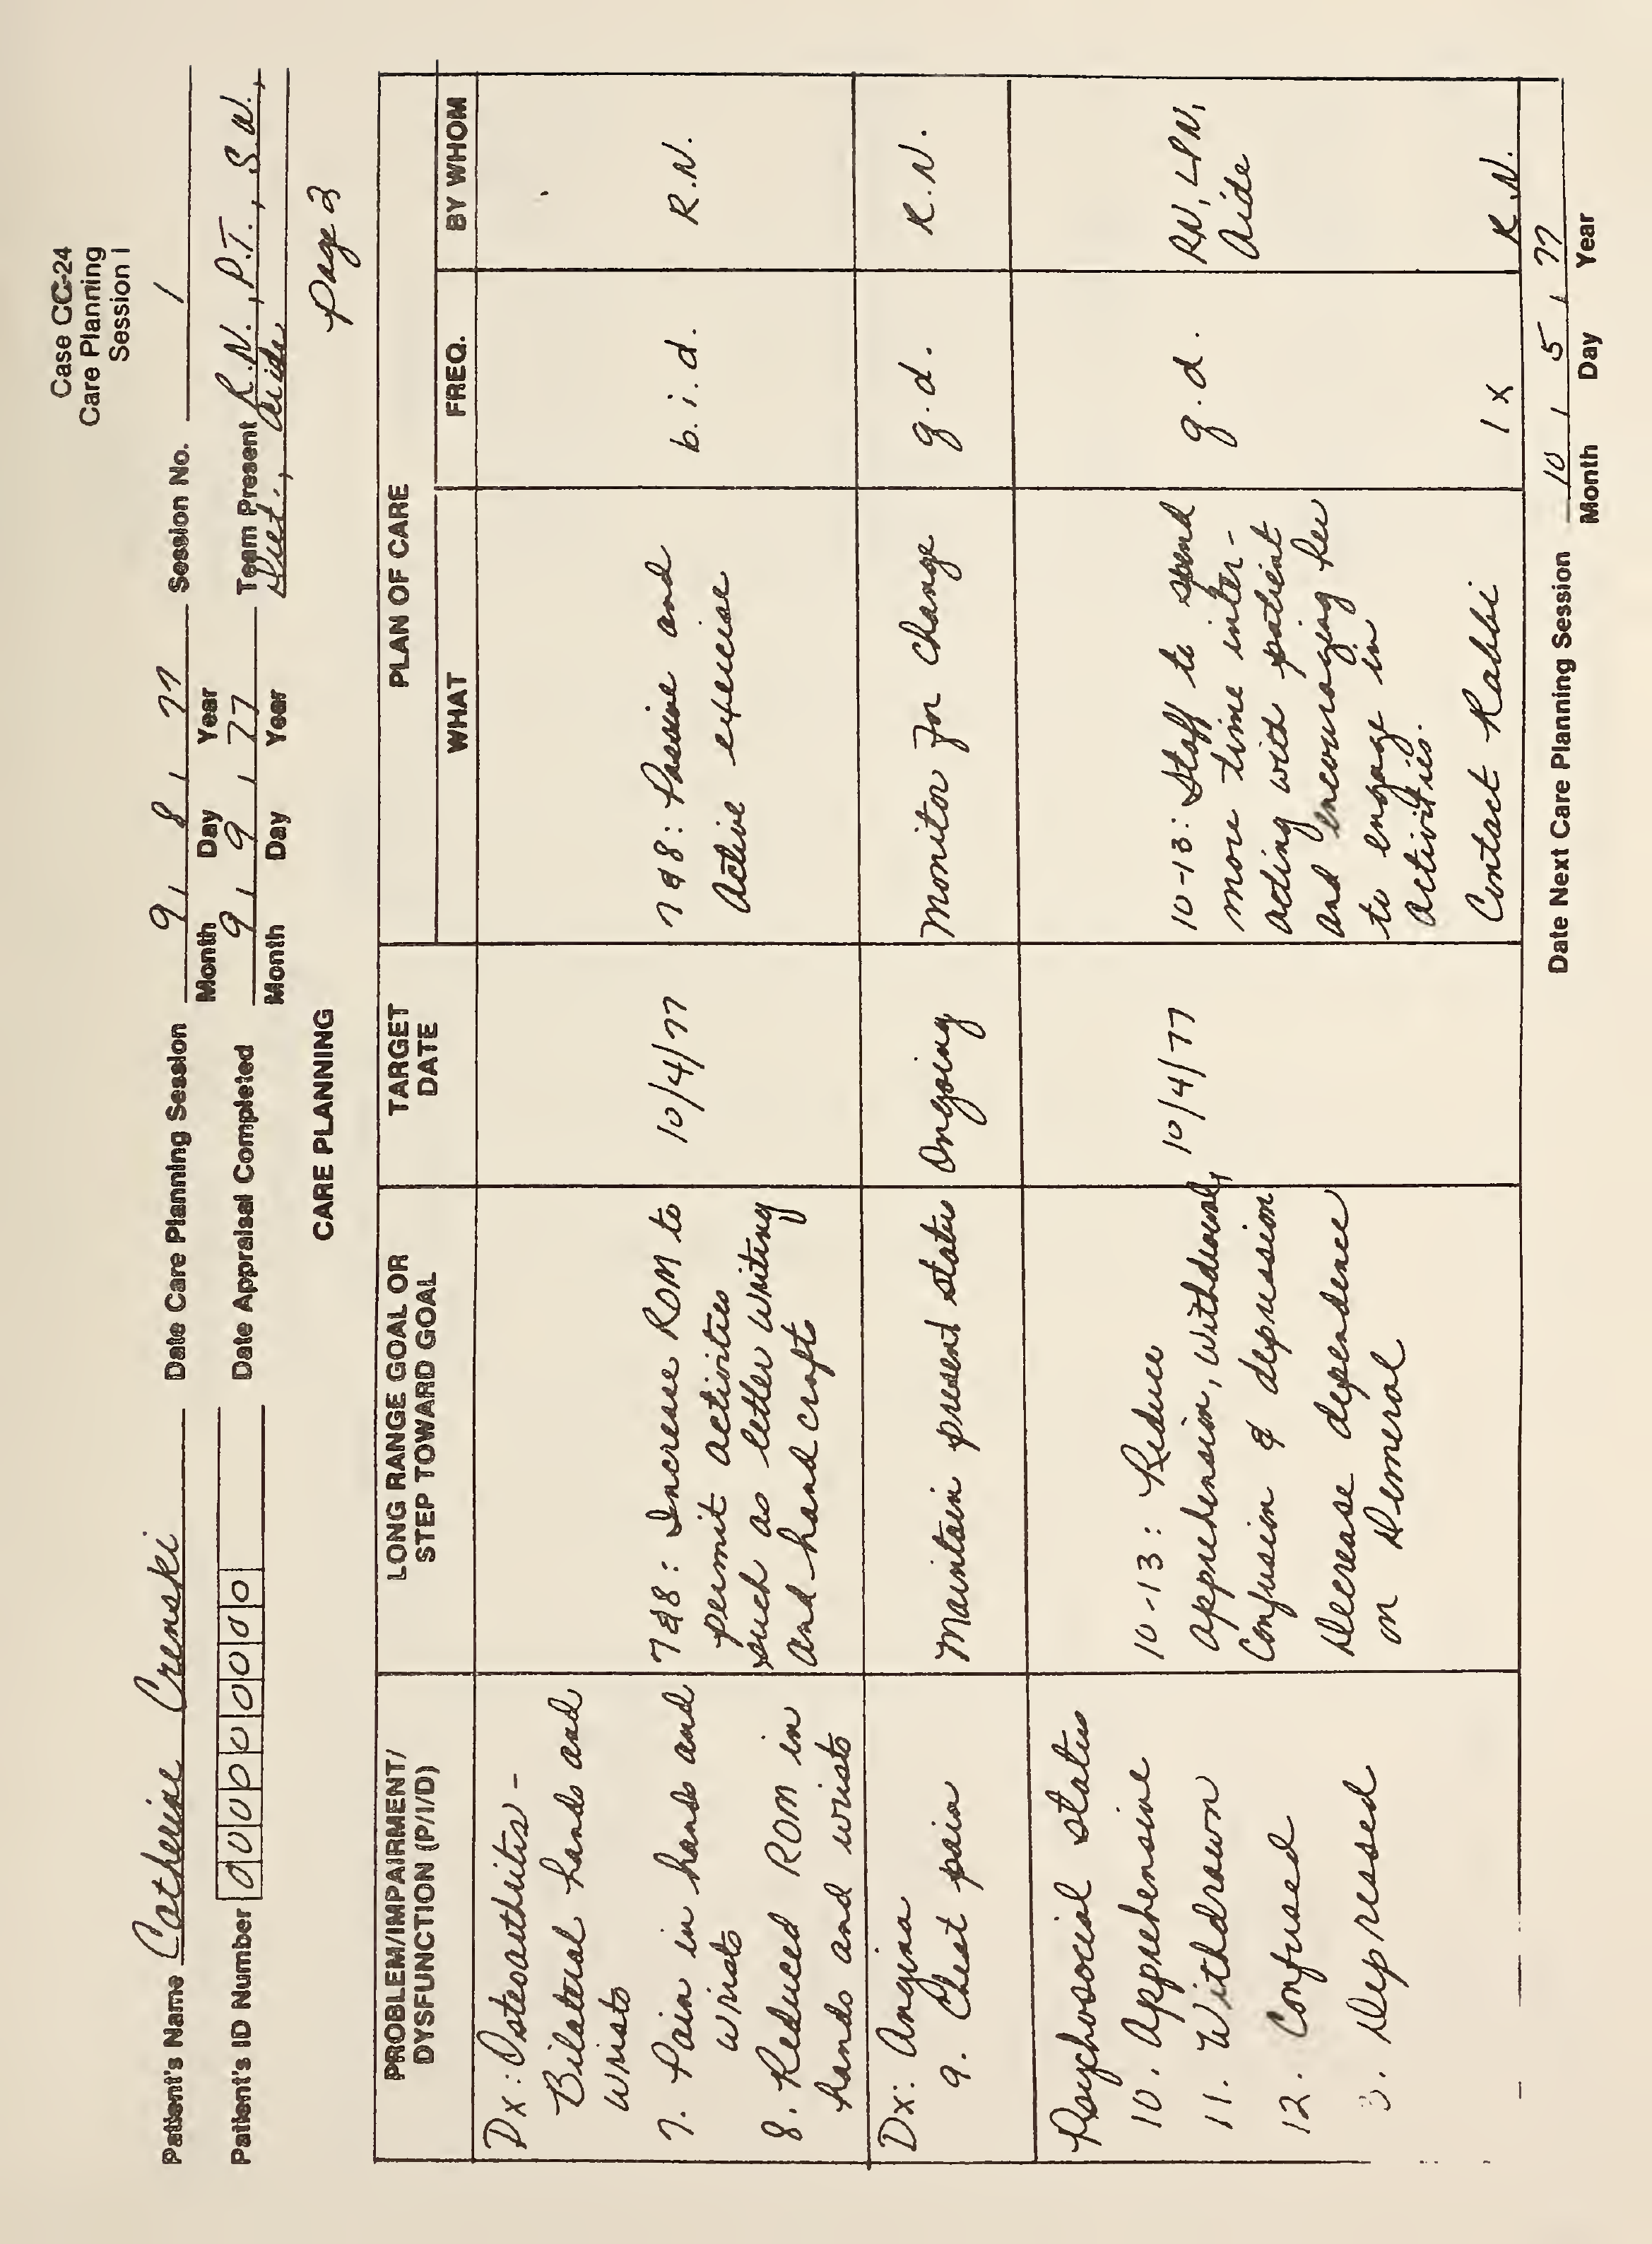 Case CC-24
Care Planning
Session I
Patient's Name Catherine Crenski Date Care Planning Session 9 8 77 Session No. 1
Month Day Year
Patient's ID Number 0 0 0 0 0 0 0 0 0 Date Appraisal Completed 9 9 77 Team Present R.N., P.T., S.W.,
Month Day Year Diet., Aide
CARE PLANNING
Page 3
PROBLEM/IMPAIRMENT/
DYSFUNCTION (P/I/D)
LONG RANGE GOAL OR
STEP TOWARD GOAL
TARGET
DATE
PLAN OF CARE
WHAT
FREQ.
BY WHOM
Dx: Osteoarthritis -
Bilateral hands and
wrists
7. Pain in hands and
wrists
8. Reduced ROM in
hands and wrists
7 & 8: Increase ROM to
permit activities
such as letter writing
and hand crafts
10/4/77
7 & 8: Passive and
Active exercise
b.i.d.
R.N.
Dx: Angina
9. Chest pain
Maintain present status
Ongoing
Monitor for change
q.d.
R.N.
Psychosocial status
10. Apprehensive
11. Withdrawn
12. Confused
3. Depressed
10-13: Reduce
apprehension, withdrawal,
Confusion & depression
Decrease dependence
on Demerol
10/4/77
10-13: Staff to spend
more time inter-
acting with patient
and encouraging her
to engage in
activities.
q.d.
RN, LPN,
Aide
Contact Rabbi
1 x
R.N.
Date Next Care Planning Session 10 5 77
Month Day Year